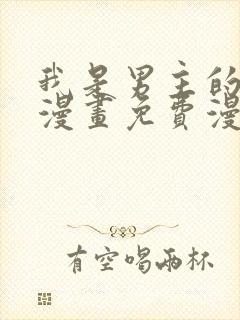 我是男主的
漫畫免費漫
有空喝兩杯